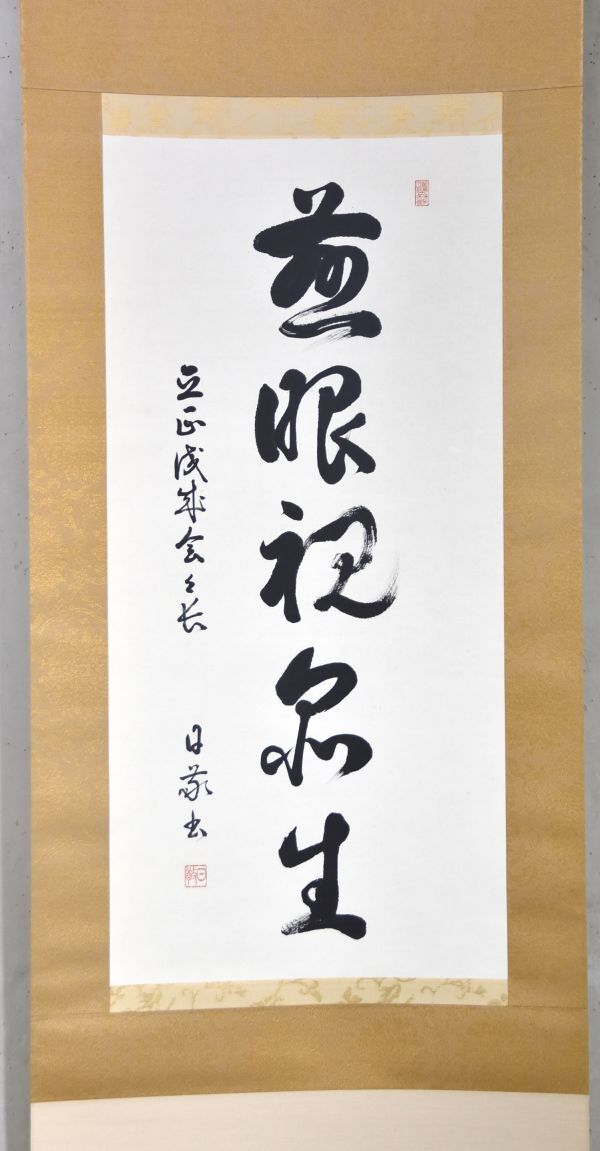 慈眼視衆生
立正佼成会々長
日敬書
日敬